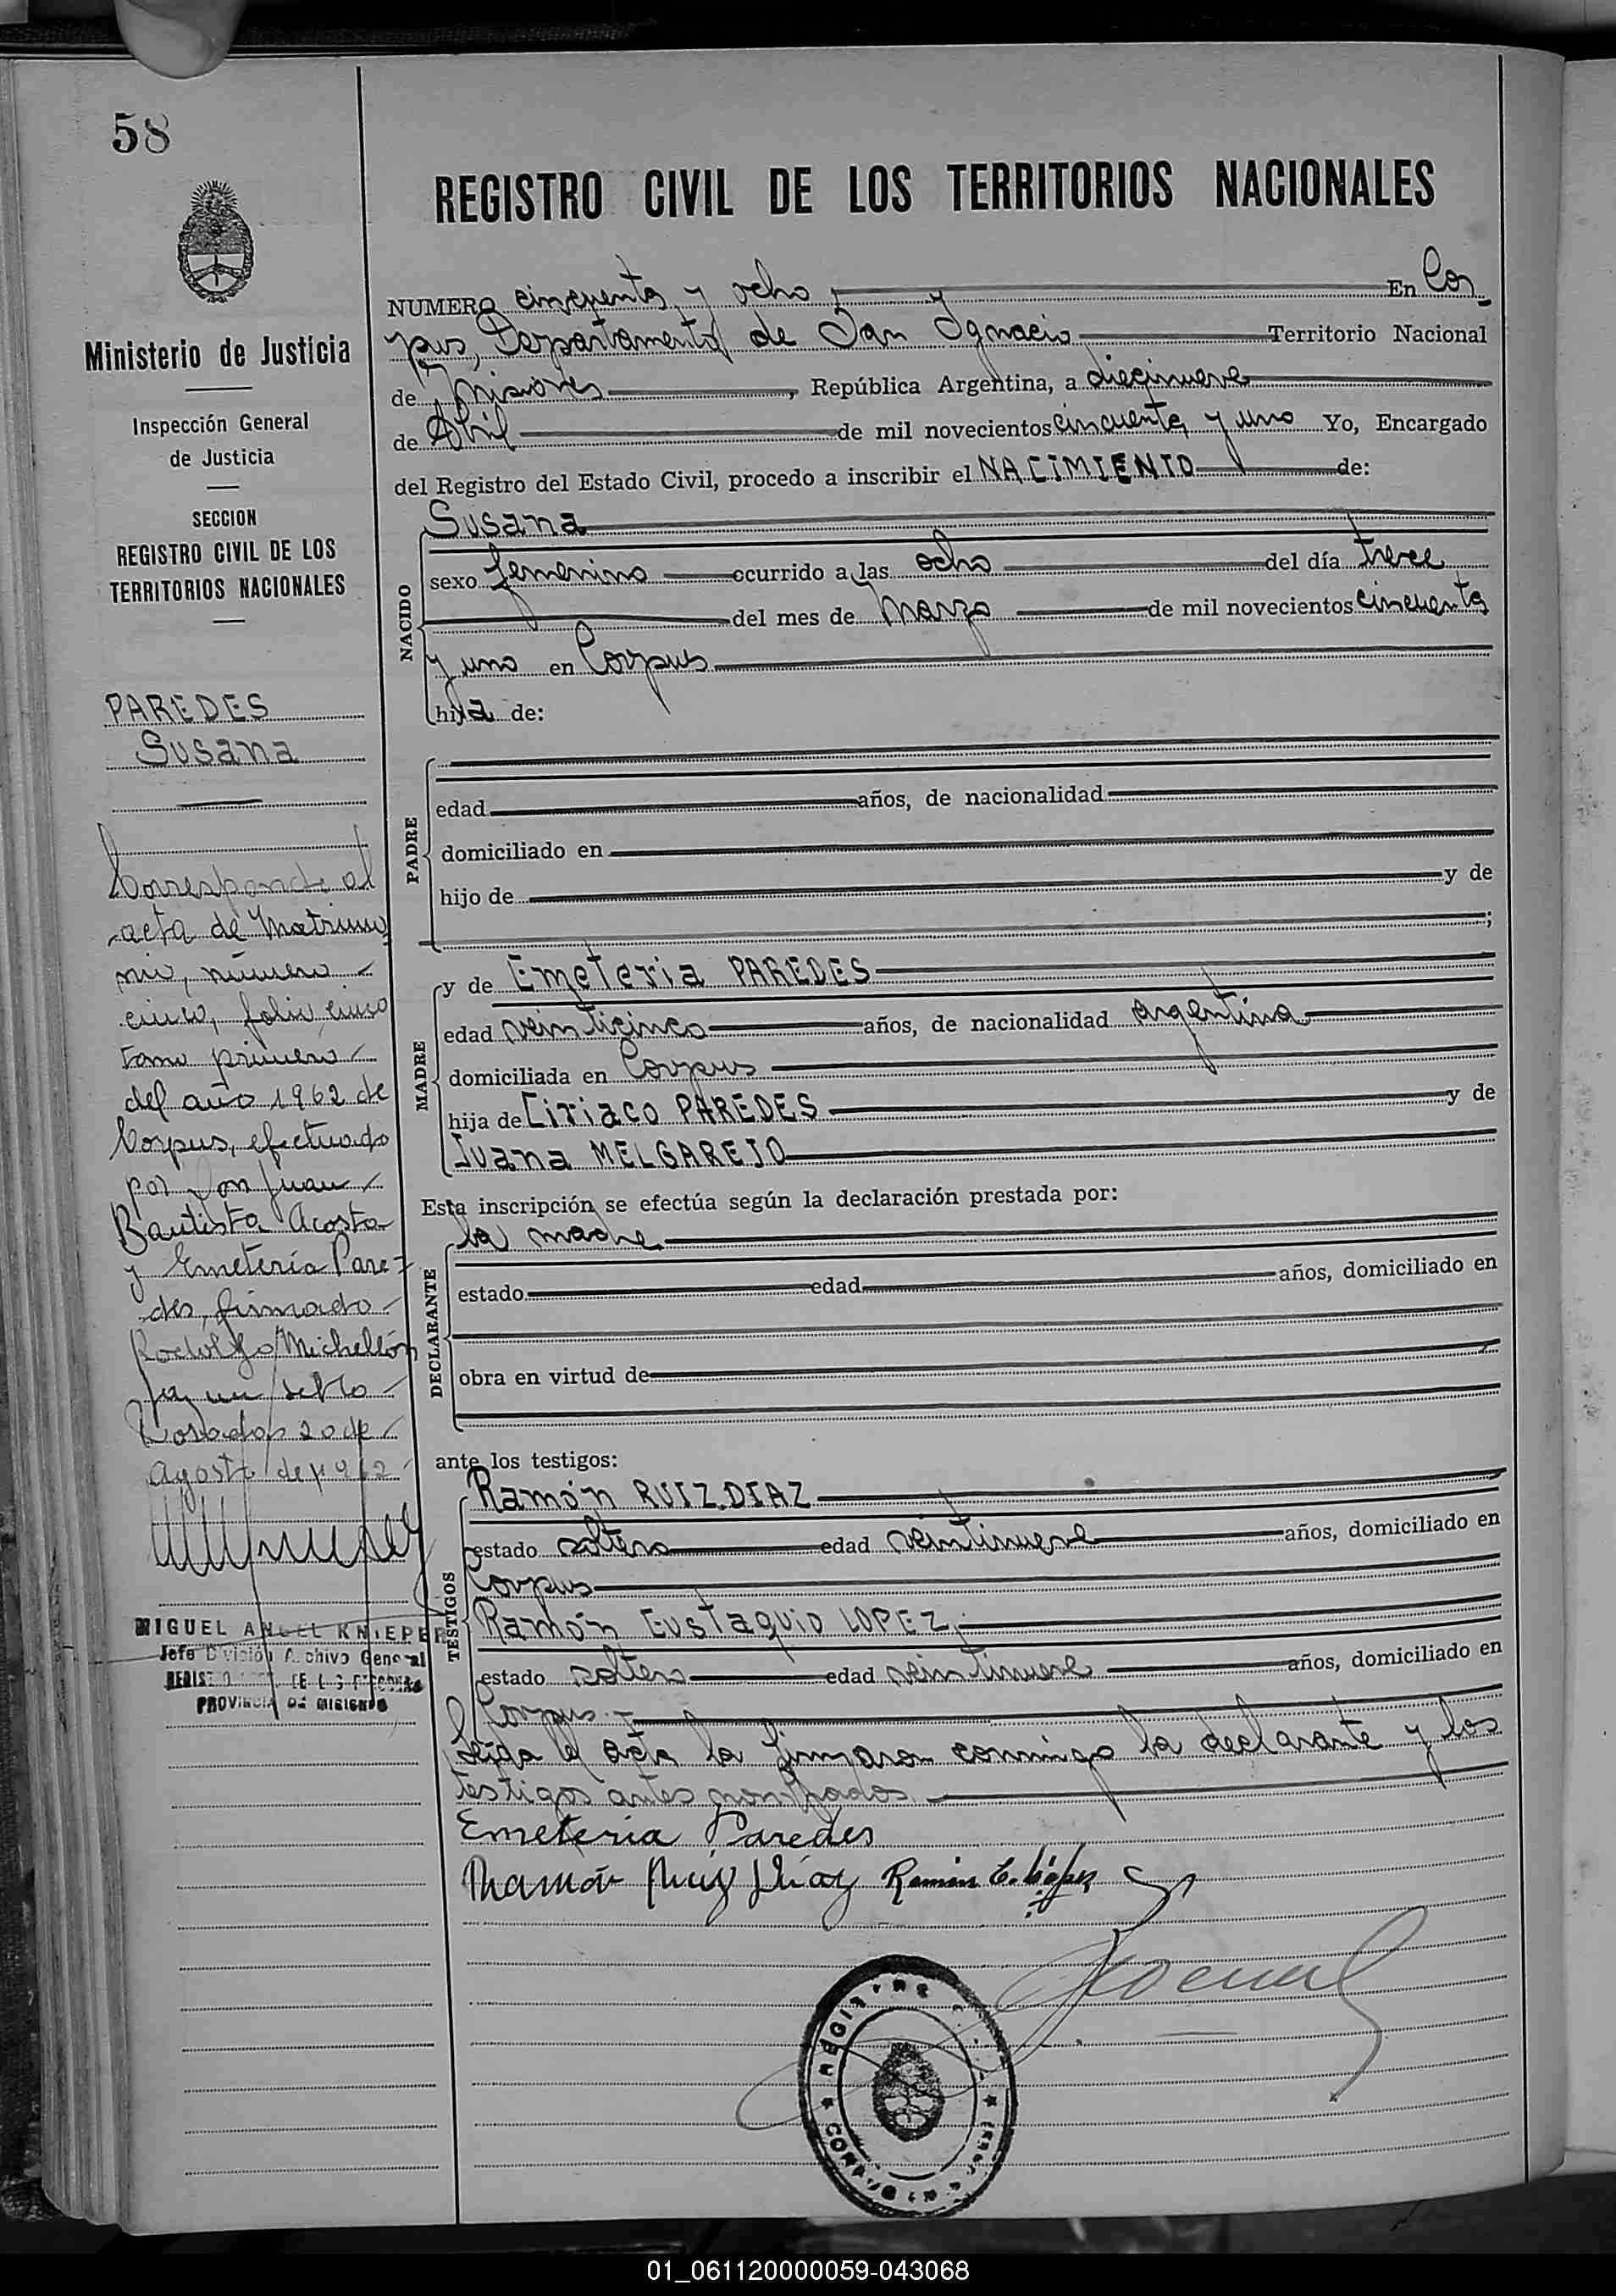 58
Ministerio de Justicia
Inspección General
de Justicia
SECCION
REGISTRO CIVIL DE LOS
TERRITORIOS NACIONALES
PAREDES
Susana
Corresponde al
acta de Matrimo
nio, número
cinco, folio cinco
tomo primero
del año 1962 de
Corpus, efectuado
por Don Juan
Bautista Acosta
y Emeteria Pare-
des, firmado
Rodolfo Michellón
Hay un sello
Posadas 20 de
Agosto de 1962
MIGUEL ANGEL KNIEPER
Jefe División Archivo General
PROVINCIA DE MISIONES
REGISTRO CIVIL DE LOS TERRITORIOS NACIONALES
NUMERO cincuenta y ocho En Cor_
pus, Departamento de San Ignacio Territorio Nacional
de Misiones, República Argentina, a diecinueve
de Abril de mil novecientos cincuenta y uno Yo, Encargado
del Registro del Estado Civil, procedo a inscribir el NACIMIENTO de:
NACIDO
Susana
sexo femenino ocurrido a las ocho del día trece
del mes de Marzo de mil novecientos cincuenta
y uno en Corpus
hija de:
PADRE
edad años, de nacionalidad
domiciliado en
hijo de y de
;
MADRE
y de Emeteria PAREDES
edad veinticinco años, de nacionalidad argentina
domiciliada en Corpus
hija de Ciriaco PAREDES y de
Juana MELGAREJO
Esta inscripción se efectúa según la declaración prestada por:
DECLARANTE
la madre
estado edad años, domiciliado en
obra en virtud de
ante los testigos:
TESTIGOS
Ramón RUIZ DIAZ
estado soltero edad veintinueve años, domiciliado en
Corpus
Ramón Eustaquio LOPEZ,
estado soltero edad veintinueve años, domiciliado en
Corpus.-
Leída el acta la firmaron conmigo la declarante y los
testigos antes nombrados
Emeteria Paredes
Ramón Ruiz Diaz Ramón E. López
01_061120000059-043068